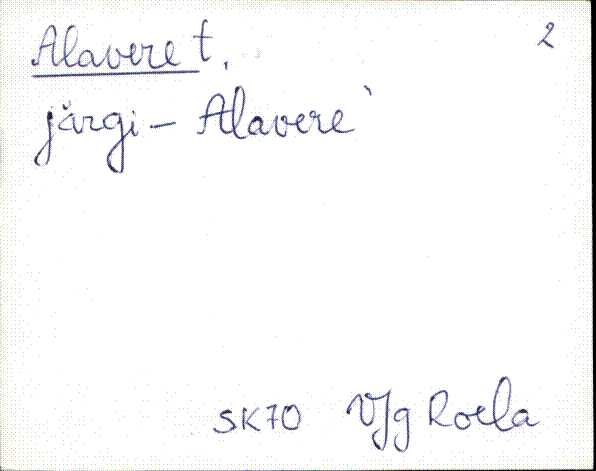 Alavere t. 2
järgi – Alavere`
SK70 VJg Roela